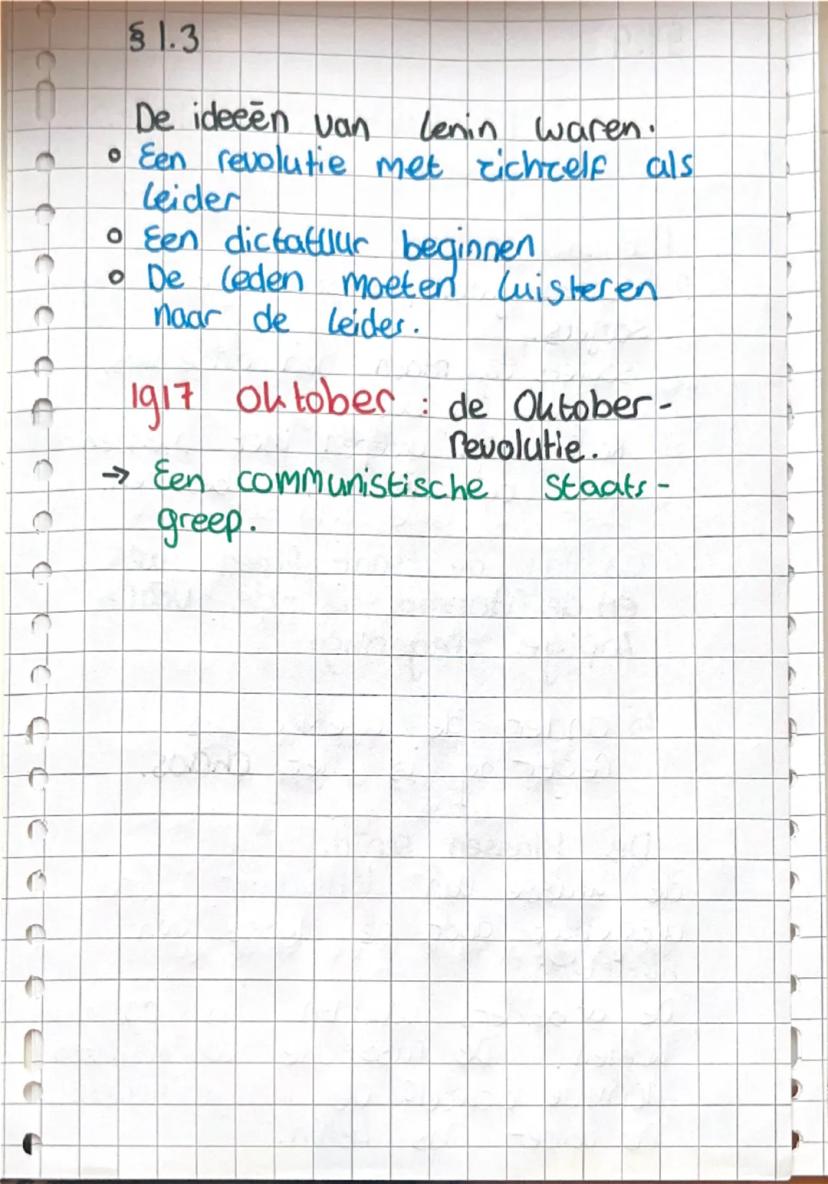 § 1.3
De ideeën van Lenin waren.
Een revolutie met zichzelf als
leider
Een dictatuur beginnen
De leden moeten luisteren
naar de leider.
1917 oktober : de Oktober-
revolutie.
→ Een communistische staats-
greep.